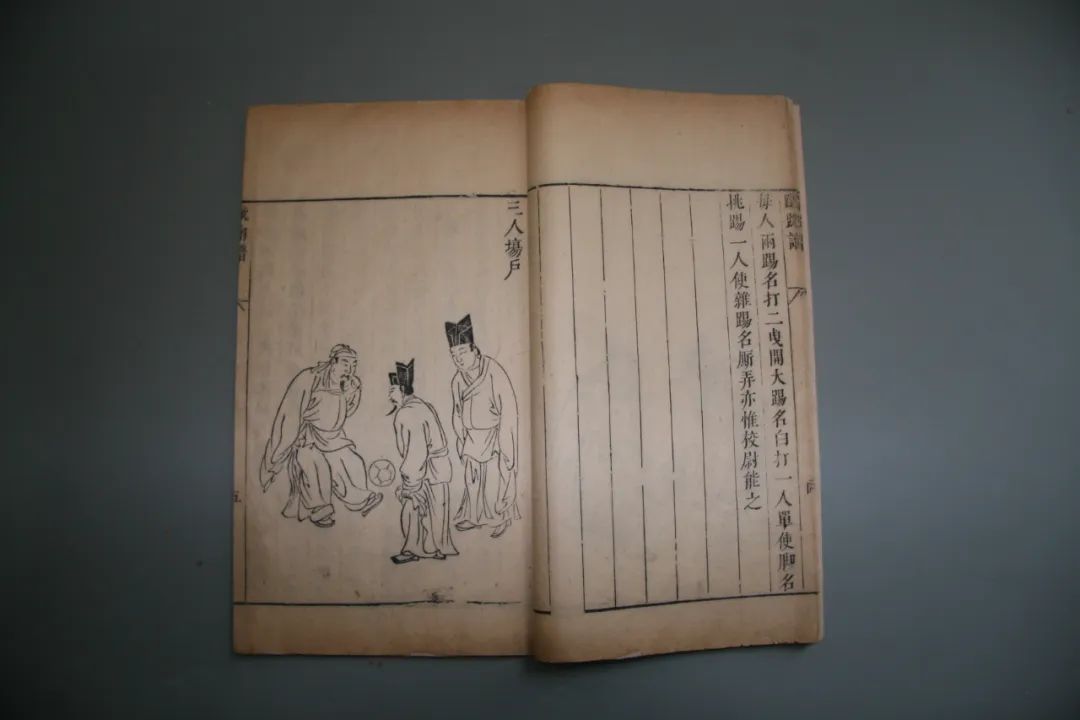 每人兩踢名打二曳開大踢名白打一人單使脚名
挑踢一人使雜踢名厮弄亦惟校尉能之
三人塲戶
五